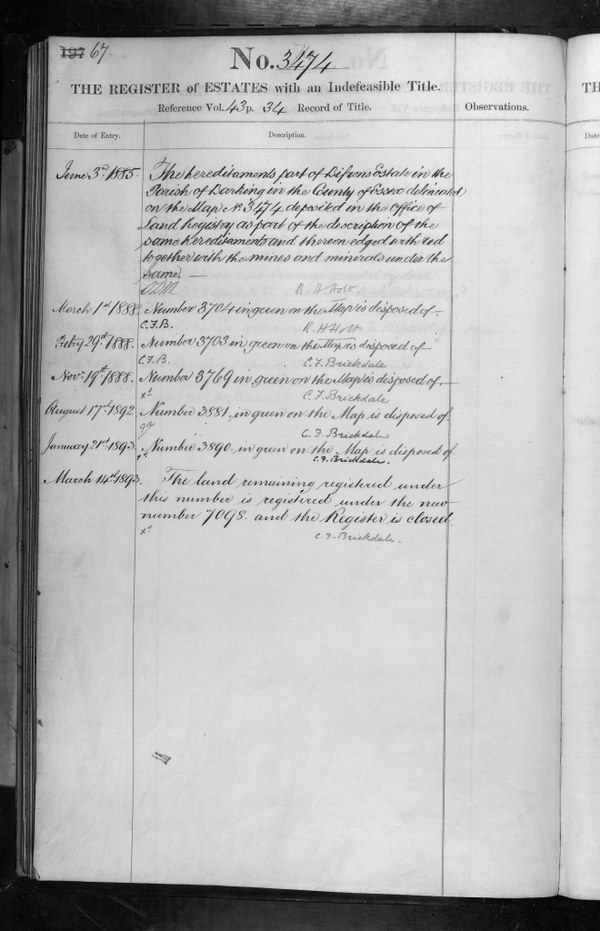 197 67.
No. 3474
THE REGISTER of ESTATES with an Indefeasible Title.
Reference Vol. 43 p. 34 Record of Title.
Observations.
Date of Entry.
Description.
June 3rd 1885.
The hereditaments part of Estate in the
Parish of Barking in the County of Essex delineated
on the Map No. 3474 deposited in the Office of
Land Registry as part of the description of the
same hereditaments and thereon edged with red
together with the mines and minerals under the
same. —
R H Holt
March 1st 1888. Number 3704 in green on the Map is disposed of.
C.F.B. R H Holt
Feby 29th 1888. Number 3703 in green on the Map is disposed of
C.F.B. C. F. Brickdale
Novr. 19th 1888. Number 3769 in green on the Map is disposed of.
C. F. Brickdale
August 17th 1892 Number 3881. in green on the Map is disposed of.
C. F. Brickdale
January 21st 1893. Number 3890. in green on the Map is disposed of
C. F. Brickdale.
March 14th 1893. The land remaining registered under
this number is registered under the new
number 7098. and the Register is closed.
C. F. Brickdale.
TH
Date